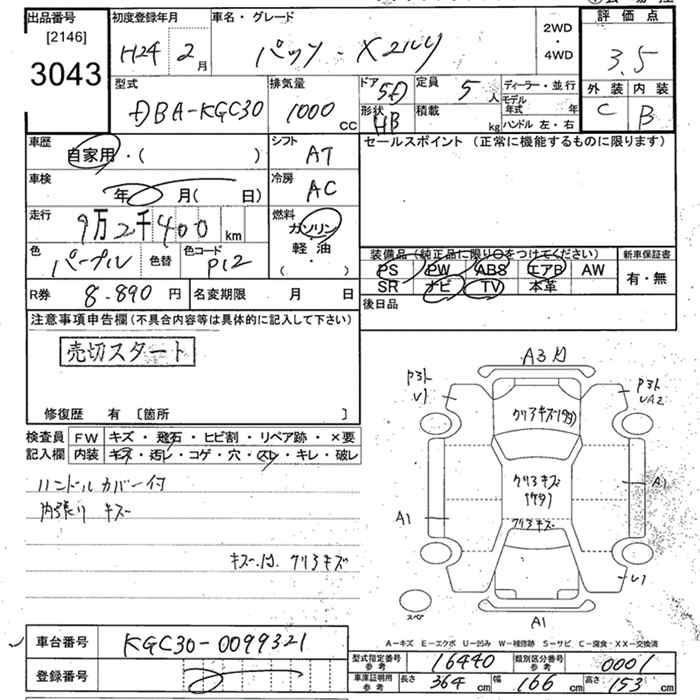 出品番号 初度登録年月 車名・グレード 評価点
[2146]
3043
H24 2月 パッソ・X 2WD・4WD 3.5
型式 排気量 ドア 5D 定員 5人 ディーラー・並行 外装 内装
DBA-KGC30 1000cc 形状 HB 積載 kg モデル年式 年 C B
ハンドル 左・右
車歴 シフト セールスポイント (正常に機能するものに限ります)
自家用・( ) AT
車検 冷房
年 月( 日) AC
走行 燃料
9万2千400km ガソリン
軽・油
・
( )
色 色替 色コード 装備品(純正品に限り〇をつけてください) 新車保証書
パープル P12 PS PW ABS エアB AW 有・無
SR ナビ TV 本革
R券 8.890円 名変期限 月 日 後日品
注意事項申告欄(不具合内容等は具体的に記入して下さい)
売切スタート
修復歴 有 〔箇所 〕
検査員 FW キズ・飛石・ヒビ割・リペア跡・×要
記入欄 内装 キズ・汚レ・コゲ・穴・スレ・キレ・破レ
ハンドルカバー付
内張り キズ
キズ.凹.クリアキズ
A3
U1
UA2
クリアキズ
クリアキズ
クリアキズ
A1
A1
U1
スペア
A1
A-キズ E-エクボ U-凹み W-補修跡 S-サビ C-腐食・XX-交換済
車台番号 KGC30-0099321
登録番号
型式指定番号 参考 16440 類別区分番号 参考 0001
車庫証明用 参考 長さ 364cm 幅 166cm 高さ 153cm